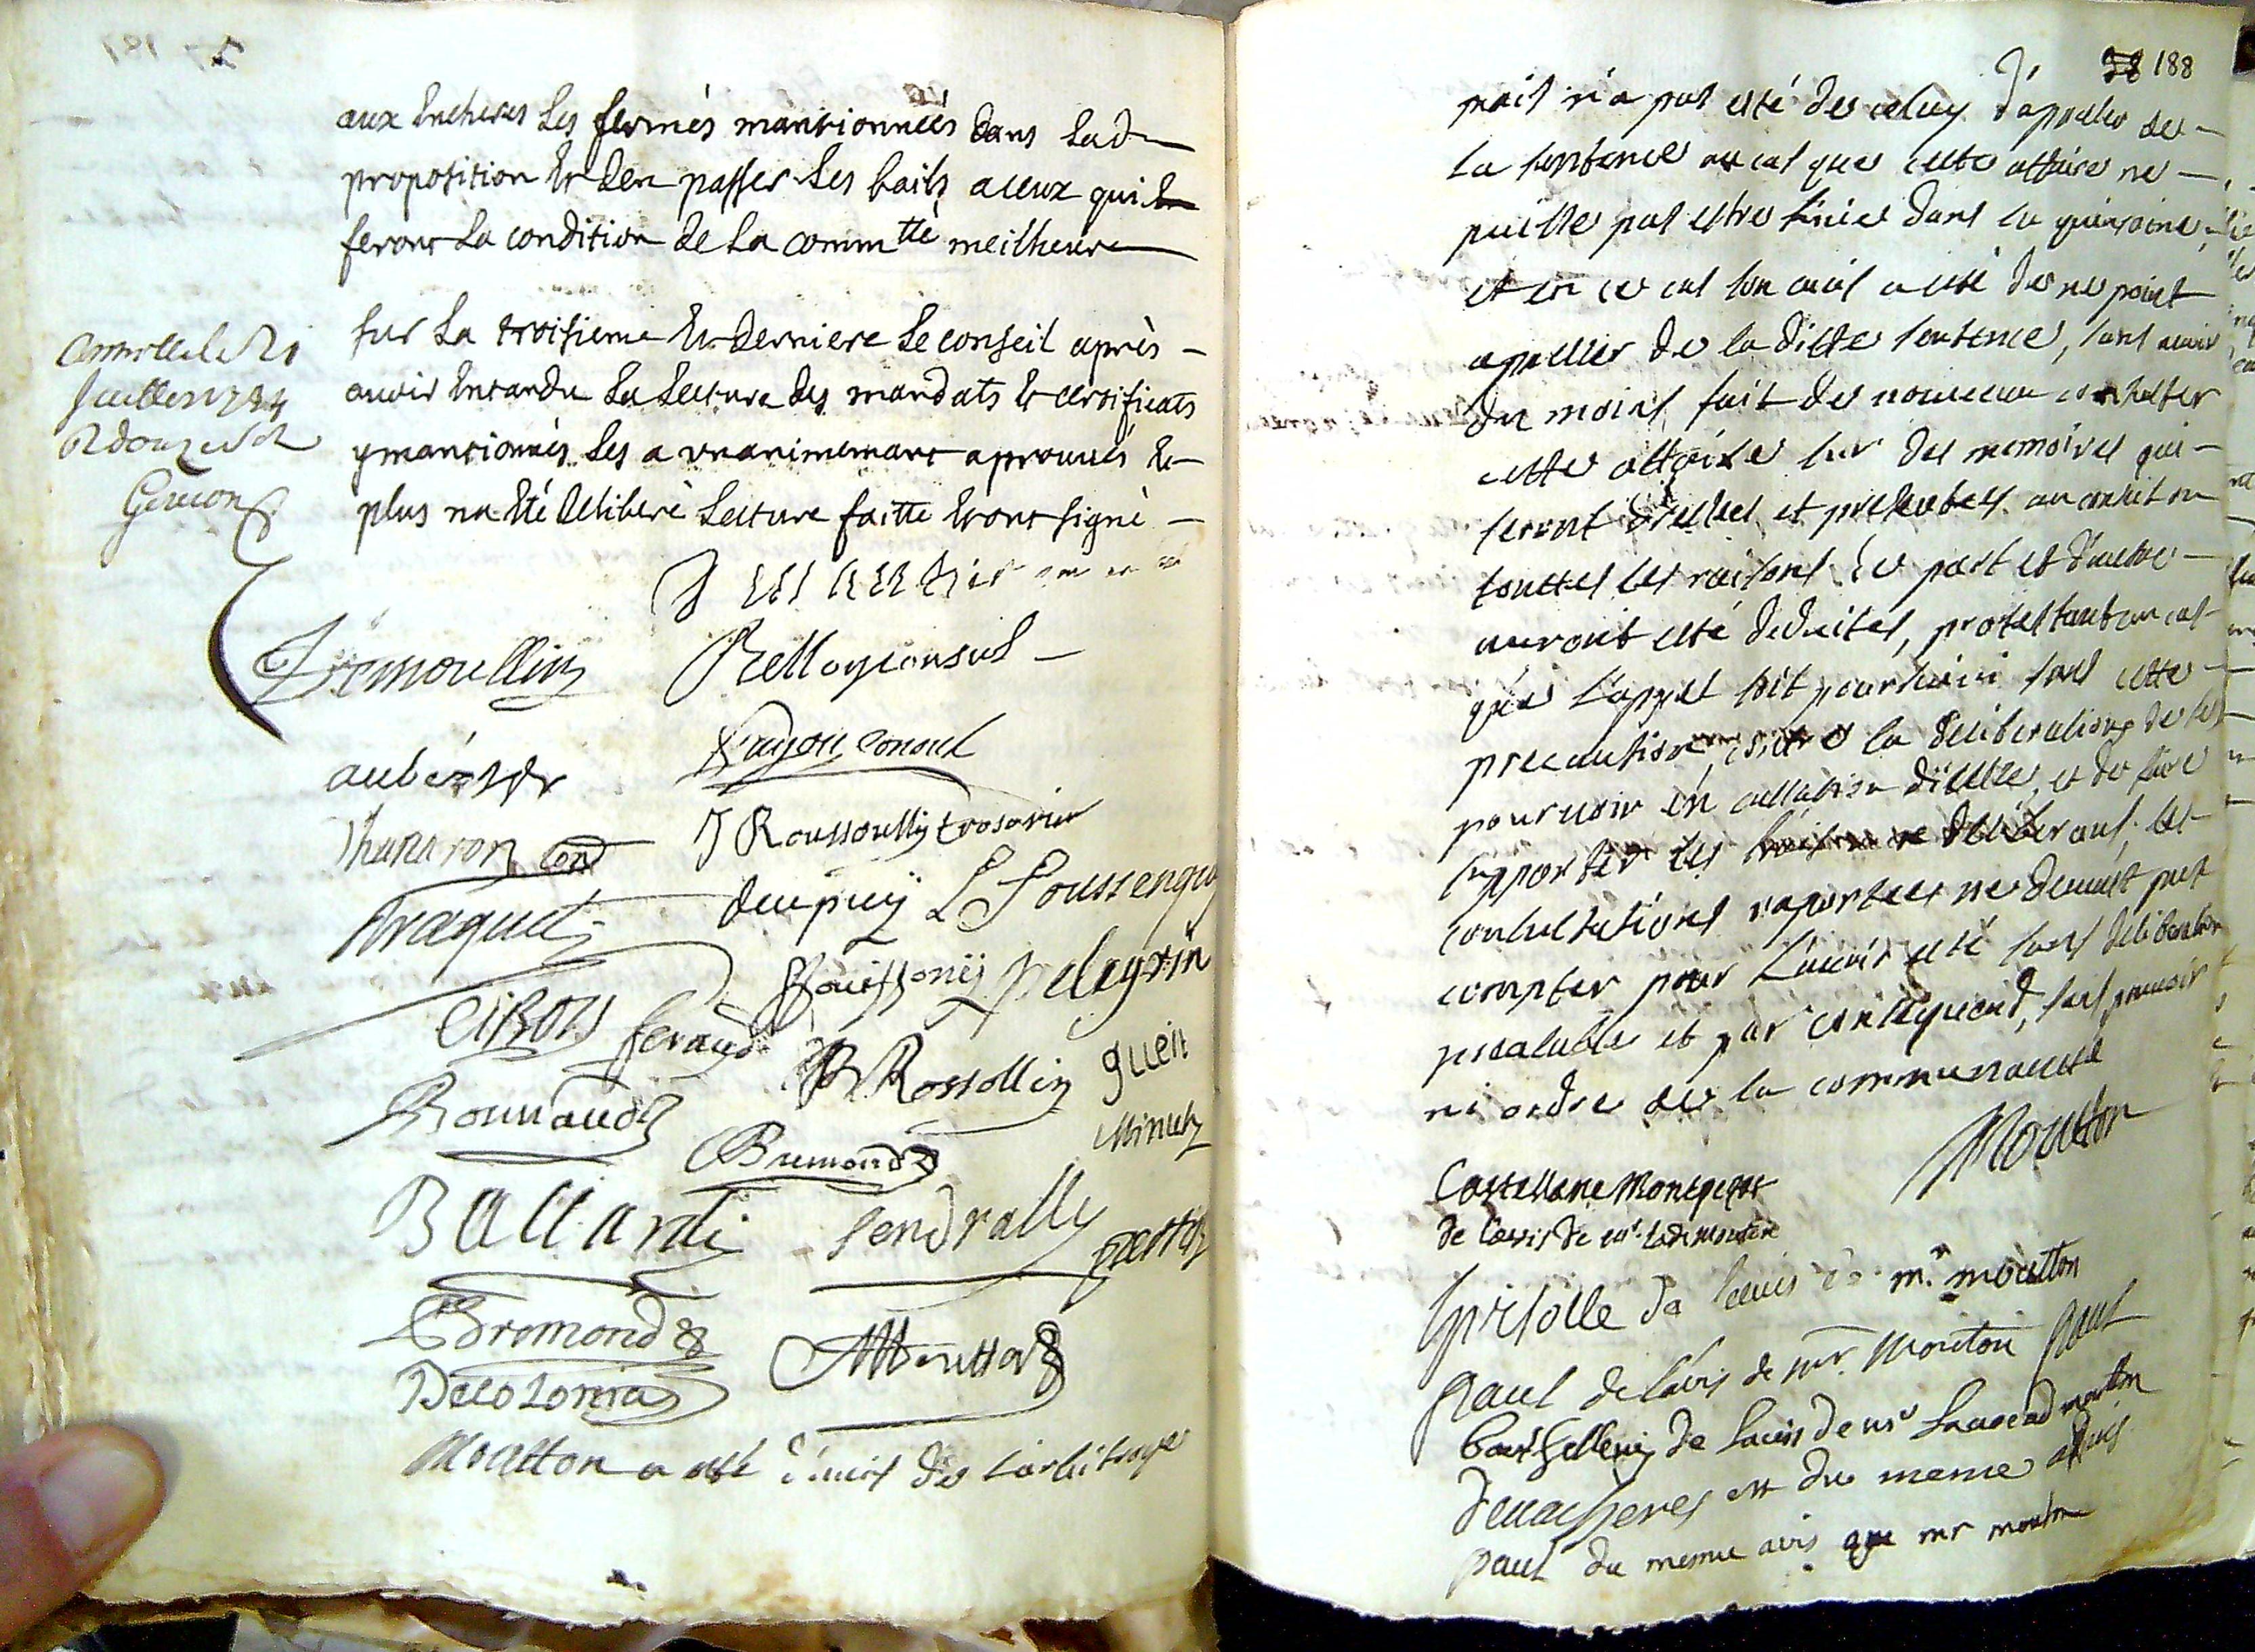 aux Encheres Les fermés mantionnées dans Lad
proposition Et den passer Les bails aceux qui
feront La condition de La comm tté meilheure
sur La troisieme Et derniere Le conseil après
avoir Entandu La Lecture des mandats Et certificats
ymantionnés Les a unanimemant aprouvés Et
plus na Eté deliberé Lecture faitte Et ont signé
Controllé le 21
Juillet 1734
R douze s
Gemoullin
consul
aubert
consul
Thanaron
J Roussoully tresorier
fraquet
dupuy L Foussenquy
pelegrin
feraud
R Rossollin guen
Rouvaud
Minuty
Bremond
Ballardi Sendrally
Bremond
Moutton
Decolonia
Moutton a esté d'avis de l'arbitrage
38 188
mais n'a pas esté de celuy d'appeller de
la sentence au cas que cette affaire ne
puisse pas estre finie dans la quinzaine
et en ce cas son avis a esté de ne point
apeller de la ditte sentence, sans avoir
du moins fait de nouveau consulter
cette affaire sur des memoires qui
seront dressés et presentés au conseil ou
touttes les raisons de part et d'autre
auront esté deduites, protestant en cas
que l'appel soit poursuivi sans cette
precaution, contre la deliberation de se
pourvoir en cassation d'icelle, et de faire
supporter les deliberans les
consultations raportees ne devant pas
compter pour l'avoir esté sans deliberation
prealable et par consequend, sans pouvoir
ni ordre de la communauté
Moutton
Castellane Montpezat
de l'avis de mr
de l'avis de mr moutton
paul de l'avis de mr Mouton paul
Barthelleny de lavis de mr Lavocad moutton
Devacheres est du meme avis
paul du mesme avis que mr mouton